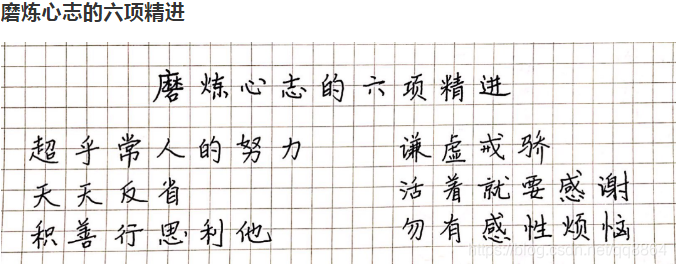 磨炼心志的六项精进
磨炼心志的六项精进
超乎常人的努力 谦虚戒骄
天天反省 活着就要感谢
积善行思利他 勿有感性烦恼